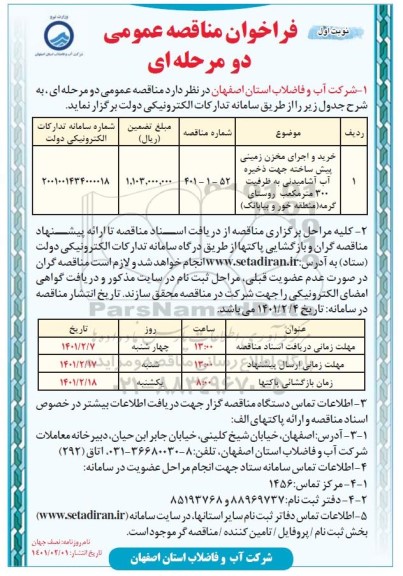 وزارت نیرو
شرکت آب و فاضلاب استان اصفهان
نوبت اول
فراخوان مناقصه عمومی
دو مرحله ای
۱-شرکت آب و فاضلاب استان اصفهان در نظر دارد مناقصه عمومی دو مرحله ای، به
شرح جدول زیر را از طریق سامانه تدارکات الکترونیکی دولت برگزار نماید.
ردیف موضوع شماره مناقصه مبلغ تضمین (ریال) شماره سامانه تدارکات الکترونیکی دولت
۱ خرید و اجرای مخزن زمینی پیش ساخته جهت ذخیره آب آشامیدنی به ظرفیت ۳۰۰ مترمکعب روستای گرمه(منطقه خور و بیابانک) ۵۲-۱-۴۰۱ ۱,۱۰۳,۰۰۰,۰۰۰ ۲۰۰۱۰۰۱۴۳۴۰۰۰۰۱۸
۲- کلیه مراحل برگزاری مناقصه از دریافت اسناد مناقصه تا ارائه پیشنهاد
مناقصه گران و بازگشایی پاکتها از طریق درگاه سامانه تدارکات الکترونیکی دولت
(ستاد) به آدرس: www.setadiran.ir انجام خواهد شد و لازم است مناقصه گران
در صورت عدم عضویت قبلی، مراحل ثبت نام در سایت مذکور و دریافت گواهی
امضای الکترونیکی را جهت شرکت در مناقصه محقق سازند. تاریخ انتشار مناقصه
در سامانه: تاریخ ۱۴۰۱/۲/۴ می باشد.
عنوان ساعت روز تاریخ
مهلت زمانی دریافت اسناد مناقصه ۱۳:۰۰ چهار شنبه ۱۴۰۱/۲/۷
مهلت زمانی ارسال پیشنهاد ۱۳:۰۰ شنبه ۱۴۰۱/۲/۱۷
زمان بازگشائی پاکتها ۸:۰۰ یکشنبه ۱۴۰۱/۲/۱۸
۳-اطلاعات تماس دستگاه مناقصه گزار جهت دریافت اطلاعات بیشتر در خصوص
اسناد مناقصه و ارائه پاکتهای الف:
۳-۱- آدرس: اصفهان، خیابان شیخ کلینی، خیابان جابر ابن حیان، دبیرخانه معاملات
شرکت آب و فاضلاب استان اصفهان، تلفن: ۸-۳۶۶۸۰۰۳۰-۰۳۱ اتاق (۲۹۲)
۴-اطلاعات تماس سامانه ستاد جهت انجام مراحل عضویت در سامانه:
۴-۱- مرکز تماس: ۱۴۵۶
۴-۲- دفتر ثبت نام: ۸۸۹۶۹۷۳۷ و ۸۵۱۹۳۷۶۸
۵-اطلاعات تماس دفاتر ثبت نام سایر استانها، در سایت سامانه (www.setadiran.ir)
بخش ثبت نام / پروفایل / تامین کننده / مناقصه گر موجود است.
نام روزنامه: نصف جهان
تاریخ انتشار: ۱۴۰۱/۰۲/۰۱
شرکت آب و فاضلاب استان اصفهان